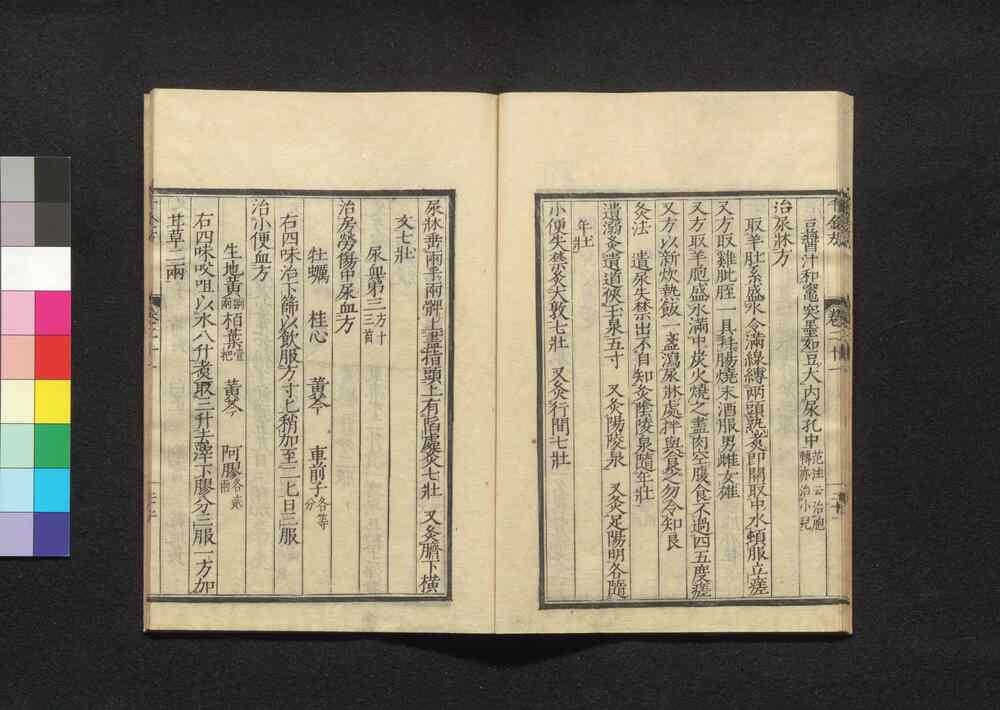 豆醬汁和竈突墨如豆大內尿孔中范汪云治胞轉亦治小兒
治尿牀方
取羊肚系盛水令滿線縛兩頭熟煑即開取中水頓服立瘥
又方取雞肶胵一具并腸燒末酒服男雌女雄
又方取羊胞盛水滿中炭火燒之盡肉空腹食不過四五度瘥
又方以新炊熱飯一盞瀉尿牀處拌與食之勿令知良
灸法 遺尿失禁出不自知灸陰陵泉隨年壯
遺溺灸遺道俠玉泉五寸 又灸陽陵泉 又灸足陽明各隨
年壯
小便失禁灸大敦七壯 又灸行間七壯
尿牀垂兩手兩髀上盡指頭上有陷處灸七壯 又灸臍下橫
文七壯
尿血第三方十三首
治房勞傷中尿血方
牡蠣 桂心 黃芩 車前子各等分
右四味治下篩以飲服方寸匕稍加至二匕日三服
治小便血方
生地黃 柏葉壹把 黃芩 阿膠各貳兩
右四味㕮咀以水八升煑取三升去滓下膠分三服一方加
甘草二兩